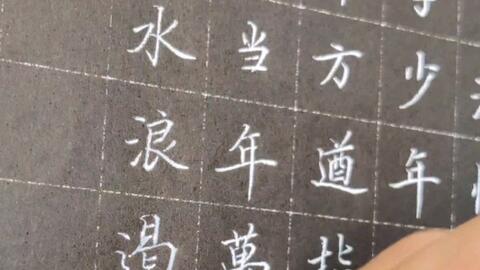 少年
方遒
当年萬
水浪遏